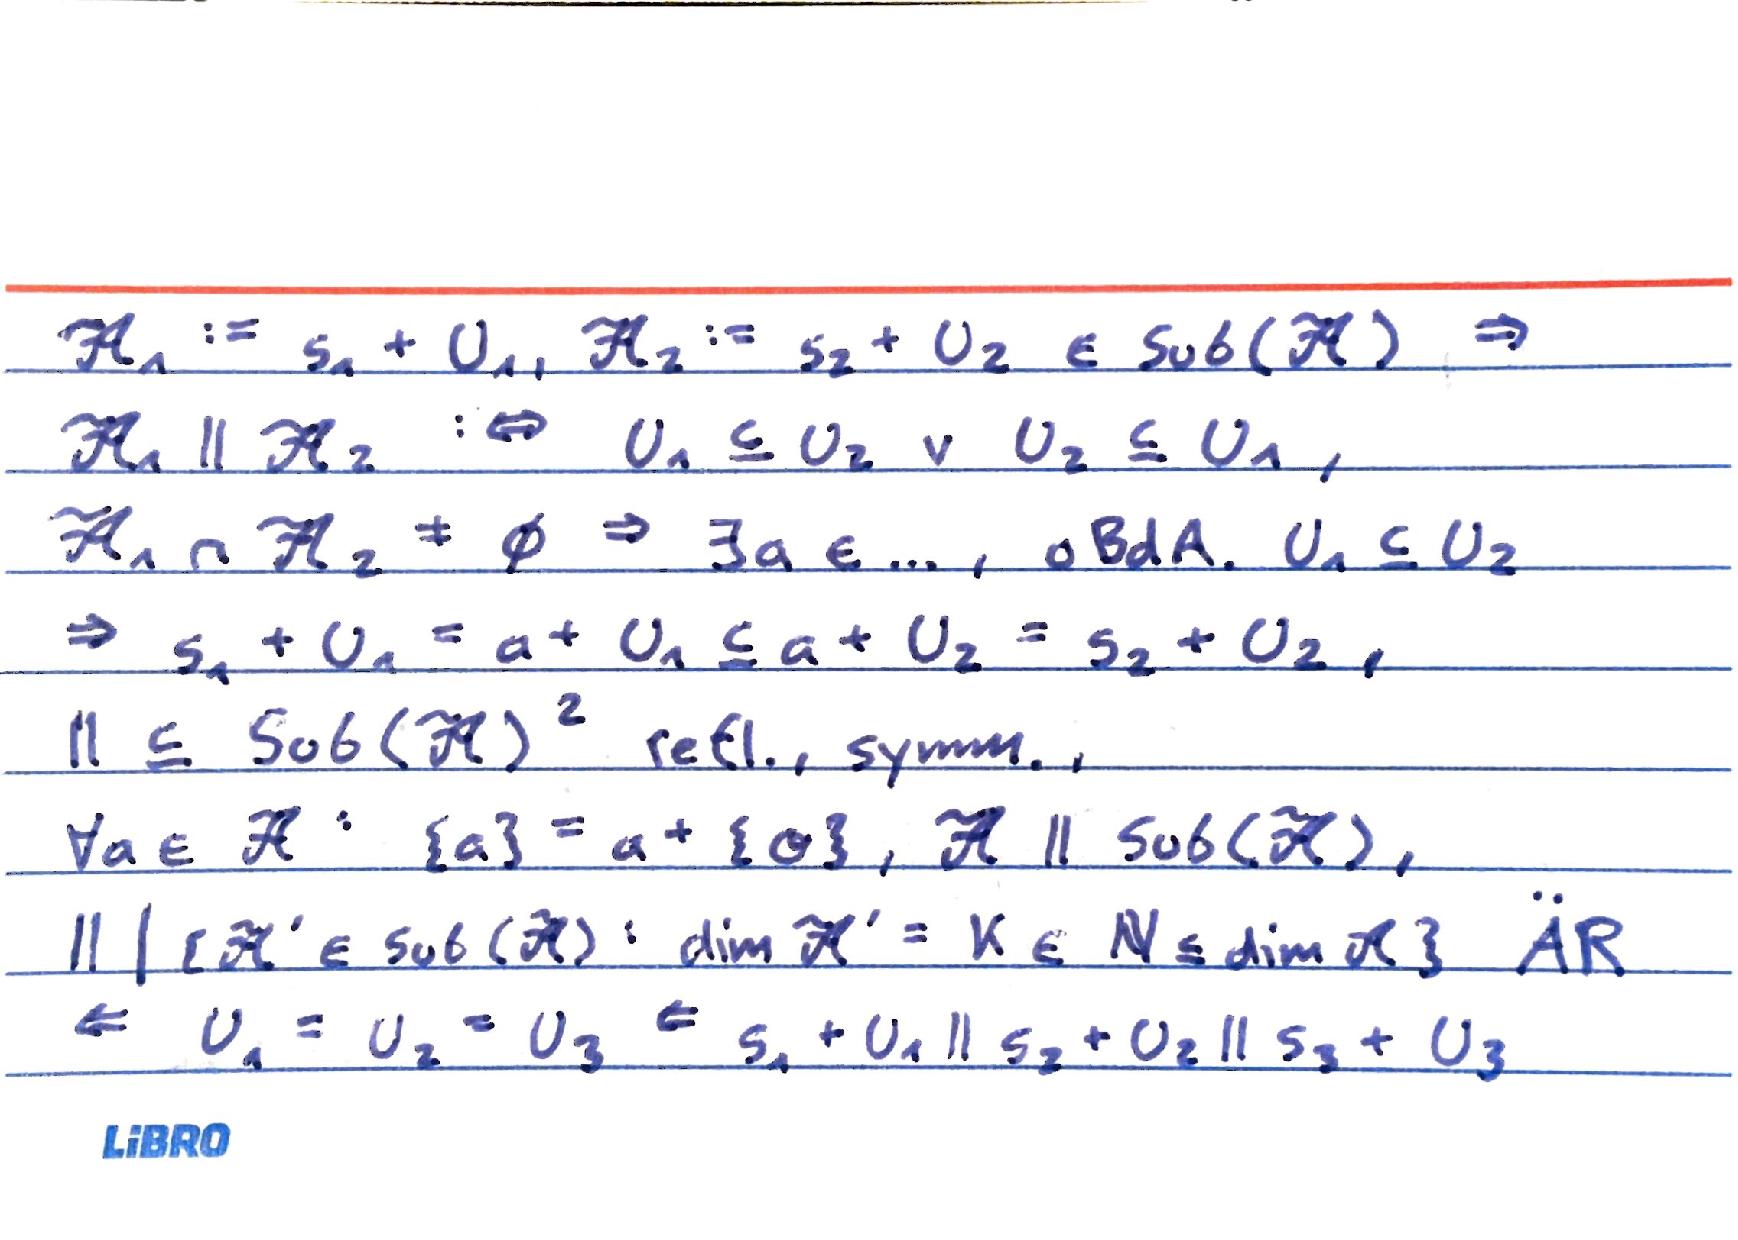 𝒜̃₁ := s₁ + U₁, 𝒜̃₂ := s₂ + U₂ ∈ Sub(𝒜̃) ⇒
𝒜̃₁ ∥ 𝒜̃₂ :⇔ U₁ ⊆ U₂ ∨ U₂ ⊆ U₁,
𝒜̃₁ ∩ 𝒜̃₂ ≠ ∅ ⇒ ∃a ∈ ..., oBdA. U₁ ⊆ U₂
⇒ s₁ + U₁ = a + U₁ ⊆ a + U₂ = s₂ + U₂,
∥ ⊆ Sub(𝒜̃)² refl., symm.,
∀a ∈ 𝒜̃ : {a} = a + {𝟎}, 𝒜̃ ∥ Sub(𝒜̃),
∥ | {𝒜̃' ∈ Sub(𝒜̃) : dim 𝒜̃' = K ∈ ℕ ≤ dim 𝒜̃} ÄR
⇐ U₁ = U₂ = U₃ ⇐ s₁ + U₁ ∥ s₂ + U₂ ∥ s₃ + U₃
LiBRO